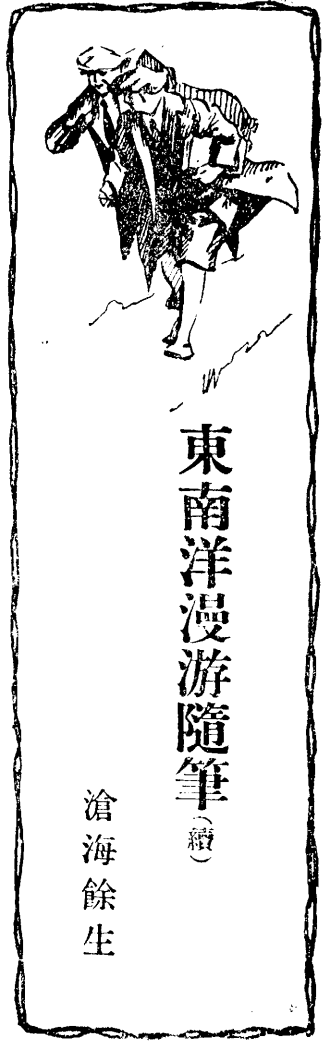 東南洋漫游隨筆(續)
滄海餘生